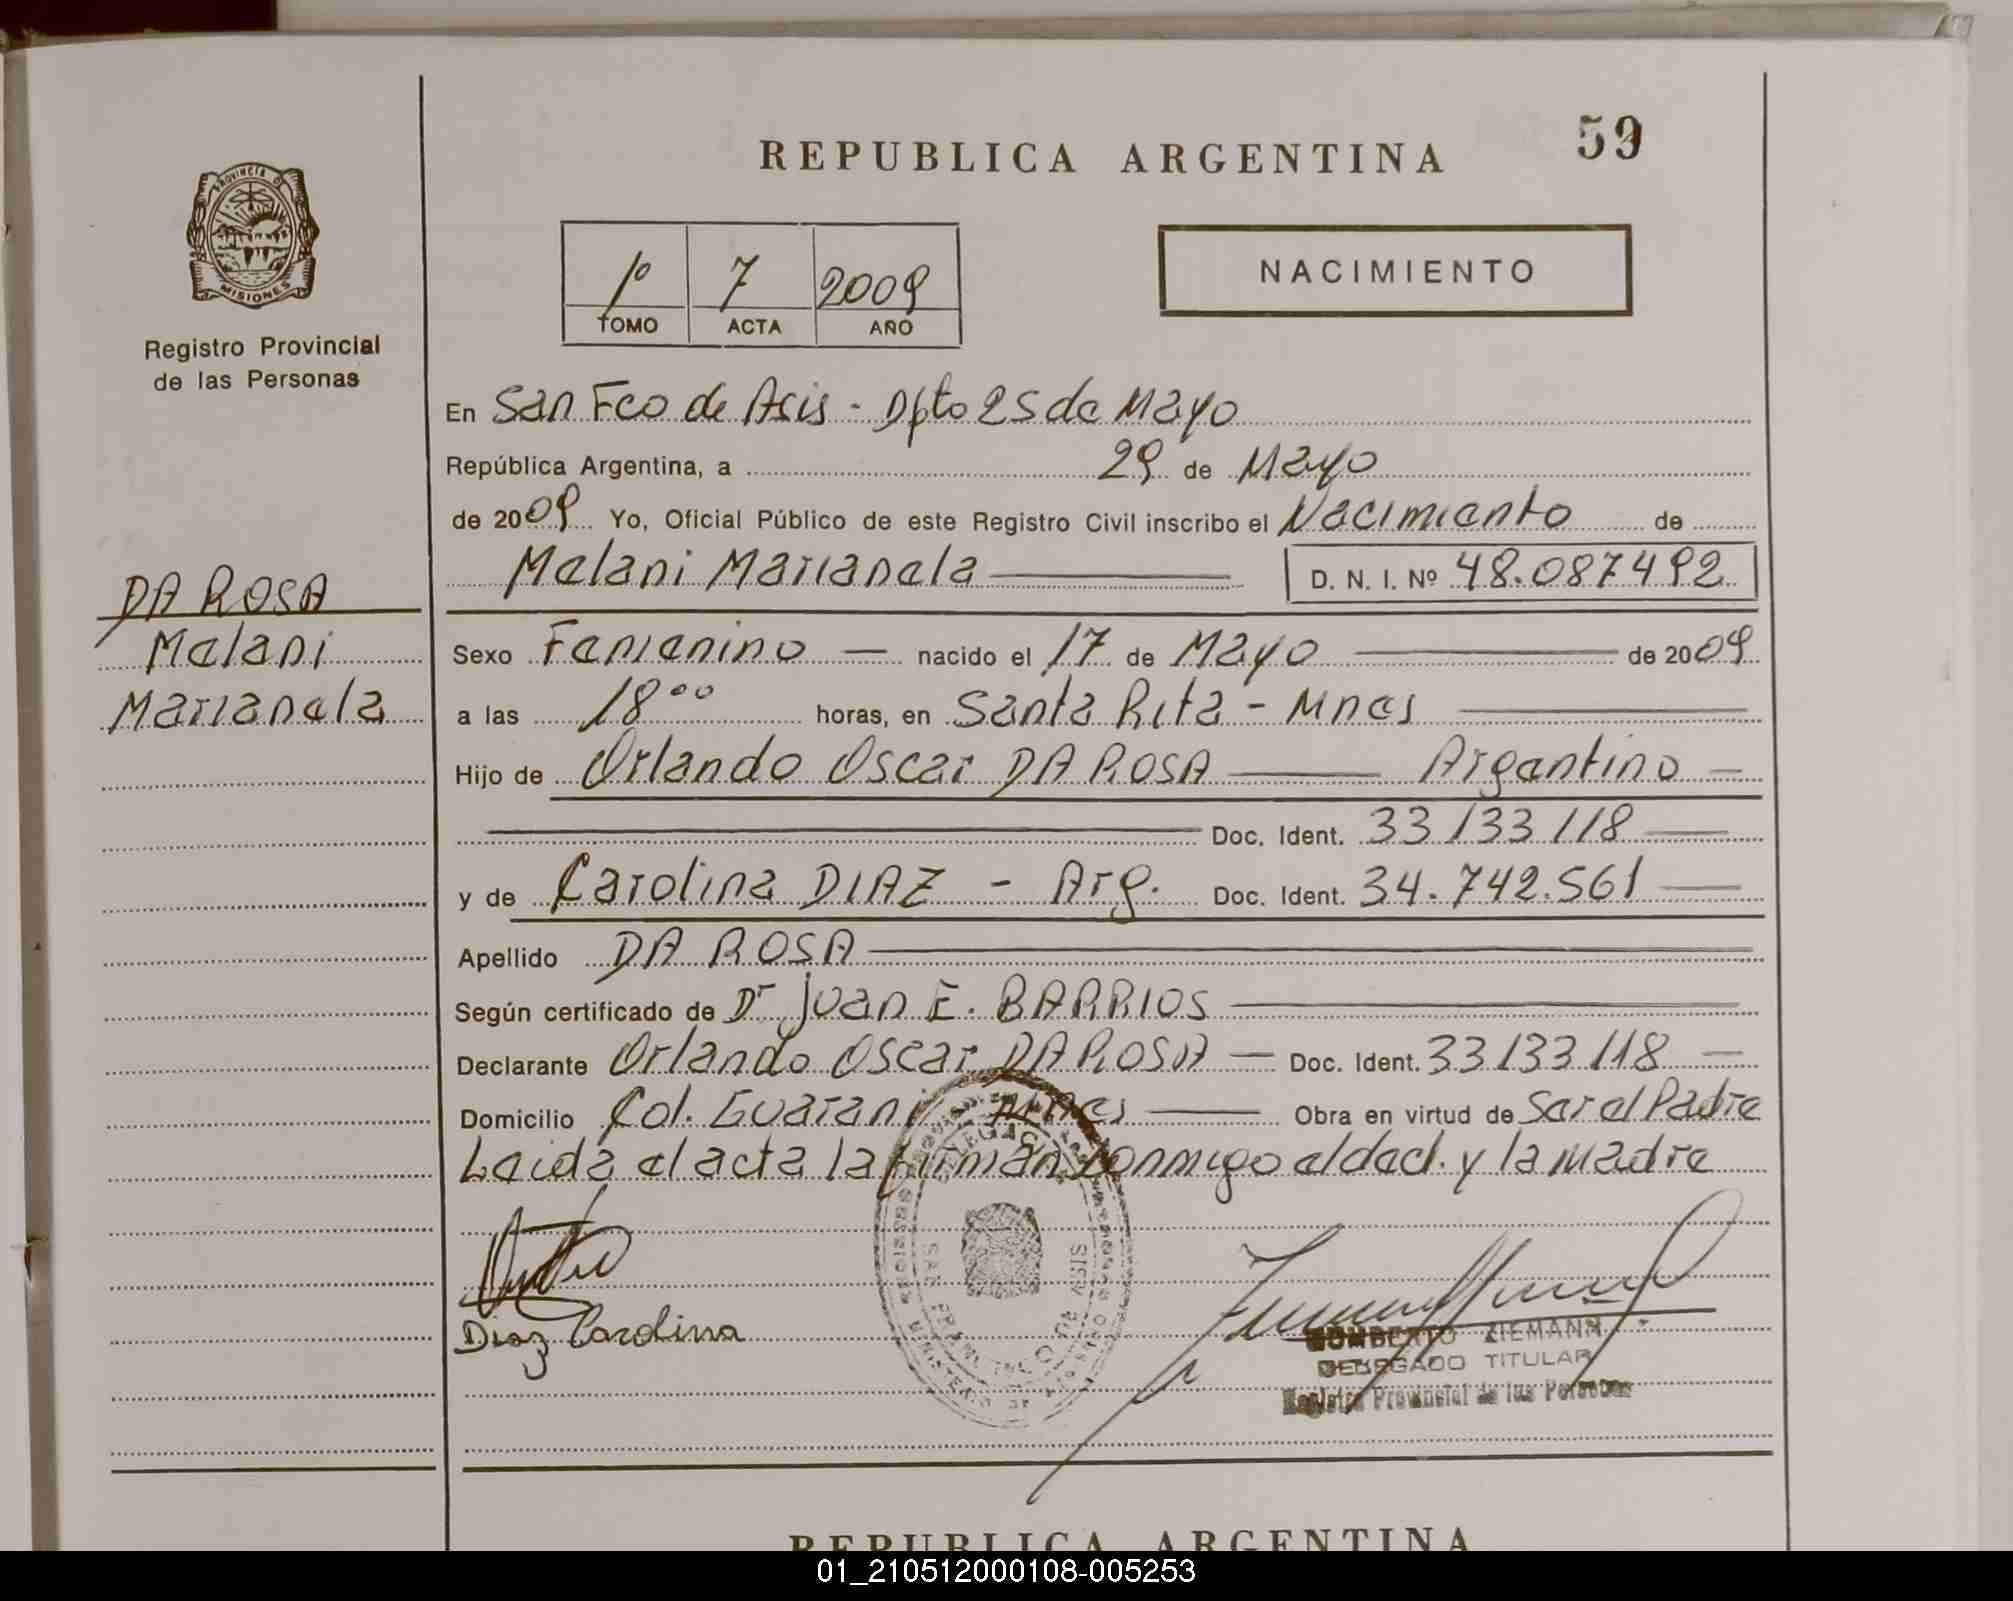 REPUBLICA ARGENTINA
59
PROVINCIA DE
MISIONES
Registro Provincial
de las Personas
1º 7 2009
TOMO ACTA AÑO
NACIMIENTO
En San Fco de Asis - Dpto 25 de Mayo
República Argentina, a 29 de Mayo
de 2009 Yo, Oficial Público de este Registro Civil inscribo el Nacimiento de
Melani Marianela D. N. I. Nº 48.087492
DA ROSA
Melani
Marianela
Sexo Femenino — nacido el 17 de Mayo de 2009
a las 18°° horas, en Santa Rita - Mnes
Hijo de Orlando Oscar DA ROSA — Argentino —
Doc. Ident. 33133118
y de Carolina DIAZ - Arg. Doc. Ident. 34.742.561
Apellido DA ROSA
Según certificado de Dr Juan E. BARRIOS
Declarante Orlando Oscar DA ROSA — Doc. Ident. 33133118
Domicilio Col. Guarani Mnes — Obra en virtud de Ser el Padre
Leida el acta la firman conmigo el decl. y la Madre
Diaz Carolina
DELEGACION
SAN FRANCISCO DE ASIS
HUMBERTO ZIEMANN
DELEGADO TITULAR
Registro Provincial de las Personas
REPUBLICA ARGENTINA
01_210512000108-005253